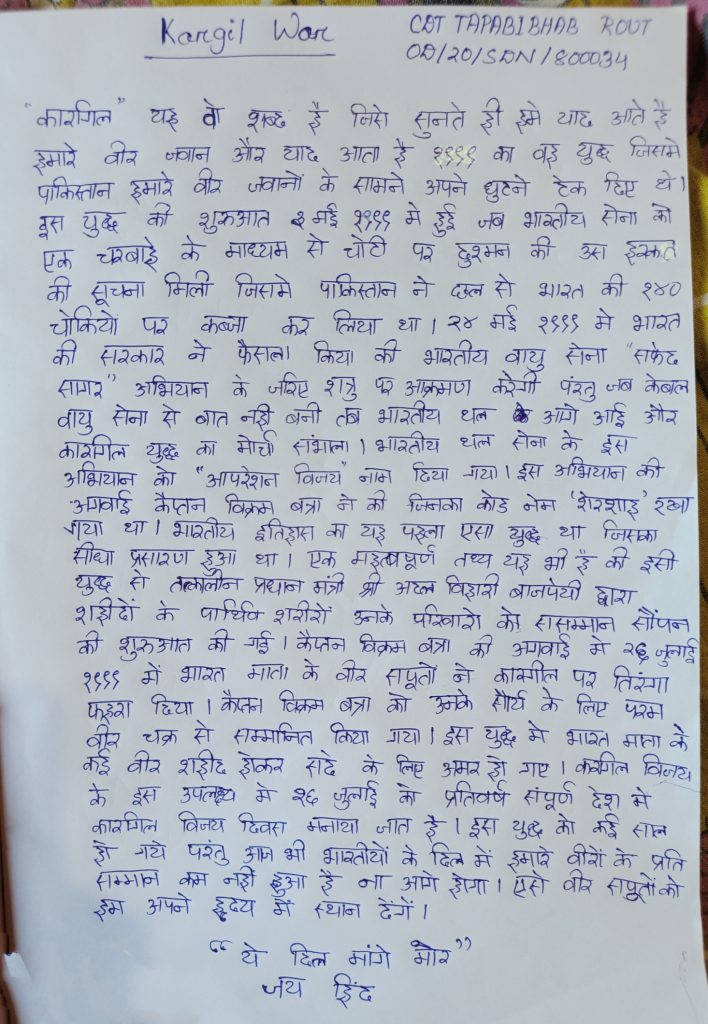 Kargil War
CDT TAPABIBHAB ROUT
OD/20/SDN/800034
"कारगिल" यह वो शब्द है जिसे सुनते ही हमे याद आते है
हमारे वीर जवान और याद आता है १९९९ का वह युद्ध जिसमे
पाकिस्तान हमारे वीर जवानों के सामने अपने घुटने टेक दिए थे।
इस युद्ध की शुरुआत ३ मई १९९९ मे हुई जब भारतीय सेना को
एक चरबाहे के माध्यम से चोटी पर दुश्मन की उस हरकत
की सूचना मिली जिसमे पाकिस्तान ने छल से भारत की १४०
चोकियो पर कब्जा कर लिया था। २४ मई १९९९ मे भारत
की सरकार ने फैसला किया की भारतीय वायु सेना "सफेद
सागर" अभियान के जरिए शत्रु पर आक्रमण करेगी परंतु जब केबल
वायु सेना से बात नही बनी तब भारतीय थल आगे आई और
कारगिल युद्ध का मोर्चा संभाला। भारतीय थल सेना के इस
अभियान को "आपरेशन विजय" नाम दिया गया। इस अभियान की
अगवाई कैप्तन विक्रम बत्रा ने की जिनका कोड नेम 'शेरशाह' रखा
गया था। भारतीय इतिहास का यह पहला एसा युद्ध था जिसका
सीधा प्रसारण हुआ था। एक महत्बपूर्ण तथ्य यह भी है की इसी
युद्ध से तत्कालीन प्रधान मंत्री श्री अटल विहारी बाजपेयी द्वारा
शहीदों के पार्थिव शरीरों उनके परिवारो को ससम्मान सौंपन
की शुरुआत की गई। कैप्तन विक्रम बत्रा की अगवाई मे २६ जुलाई
१९९९ में भारत माता के वीर सपूतों ने कारगील पर तिरंगा
फहरा दिया। कैप्तन विक्रम बत्रा को उनके सौर्य के लिए परम
वीर चक्र से सम्मानित किया गया। इस युद्ध मे भारत माता के
कई वीर शहीद होकर सदे के लिए अमर हो गए। करगिल विजय
के इस उपलक्ष्य मे २६ जुलाई को प्रतिवर्ष संपूर्ण देश मे
कारगिल विजय दिवस मनाया जात है। इस युद्ध को कई साल
हो गये परंतु आज भी भारतीयों के दिल में हमारे वीरों के प्रति
सम्मान कम नही हुआ है ना आगे होगा। एसे वीर सपूतों को
हम अपने हृदय में स्थान देंगें।
"ये दिल मांगे मोर"
जय हिंद